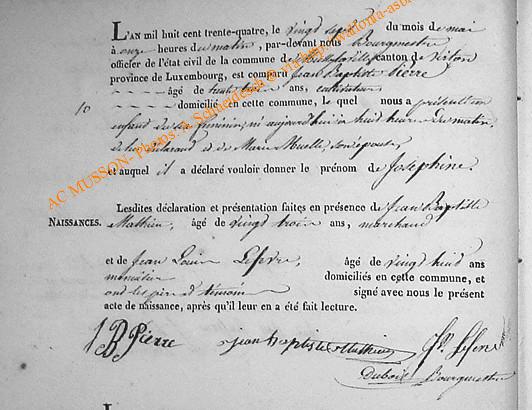 L'AN mil huit cent trente-quatre, le vingt sept du mois de mai
à onze heures du matin, par-devant nous Bourgmestre
officier de l'état civil de la commune de canton de Virton
province de Luxembourg, est comparu Jean Baptiste Pierre
âgé de trente trois ans, cultivateur
10
domicilié en cette commune, lequel nous a présenté un
enfant du sexe féminin, né aujourd'hui à huit heures du matin,
de lui déclarant et de Marie son épouse
et auquel il a déclaré vouloir donner le prénom de Joséphine.
Lesdites déclaration et présentation faites en présence de Jean Baptiste
NAISSANCES.
Mathieu, âgé de vingt trois ans, marchand
et de Jean Louis Lefevre, âgé de vingt huit ans
menuisier domiciliés en cette commune, et
ont les père et témoins signé avec nous le présent
acte de naissance, après qu'il leur en a été fait lecture.
JB Pierre jean baptiste Mathieu Lefevre
Bourgmestre
AC MUSSON- Photos A. Schneidesch © via http://walonia-asb